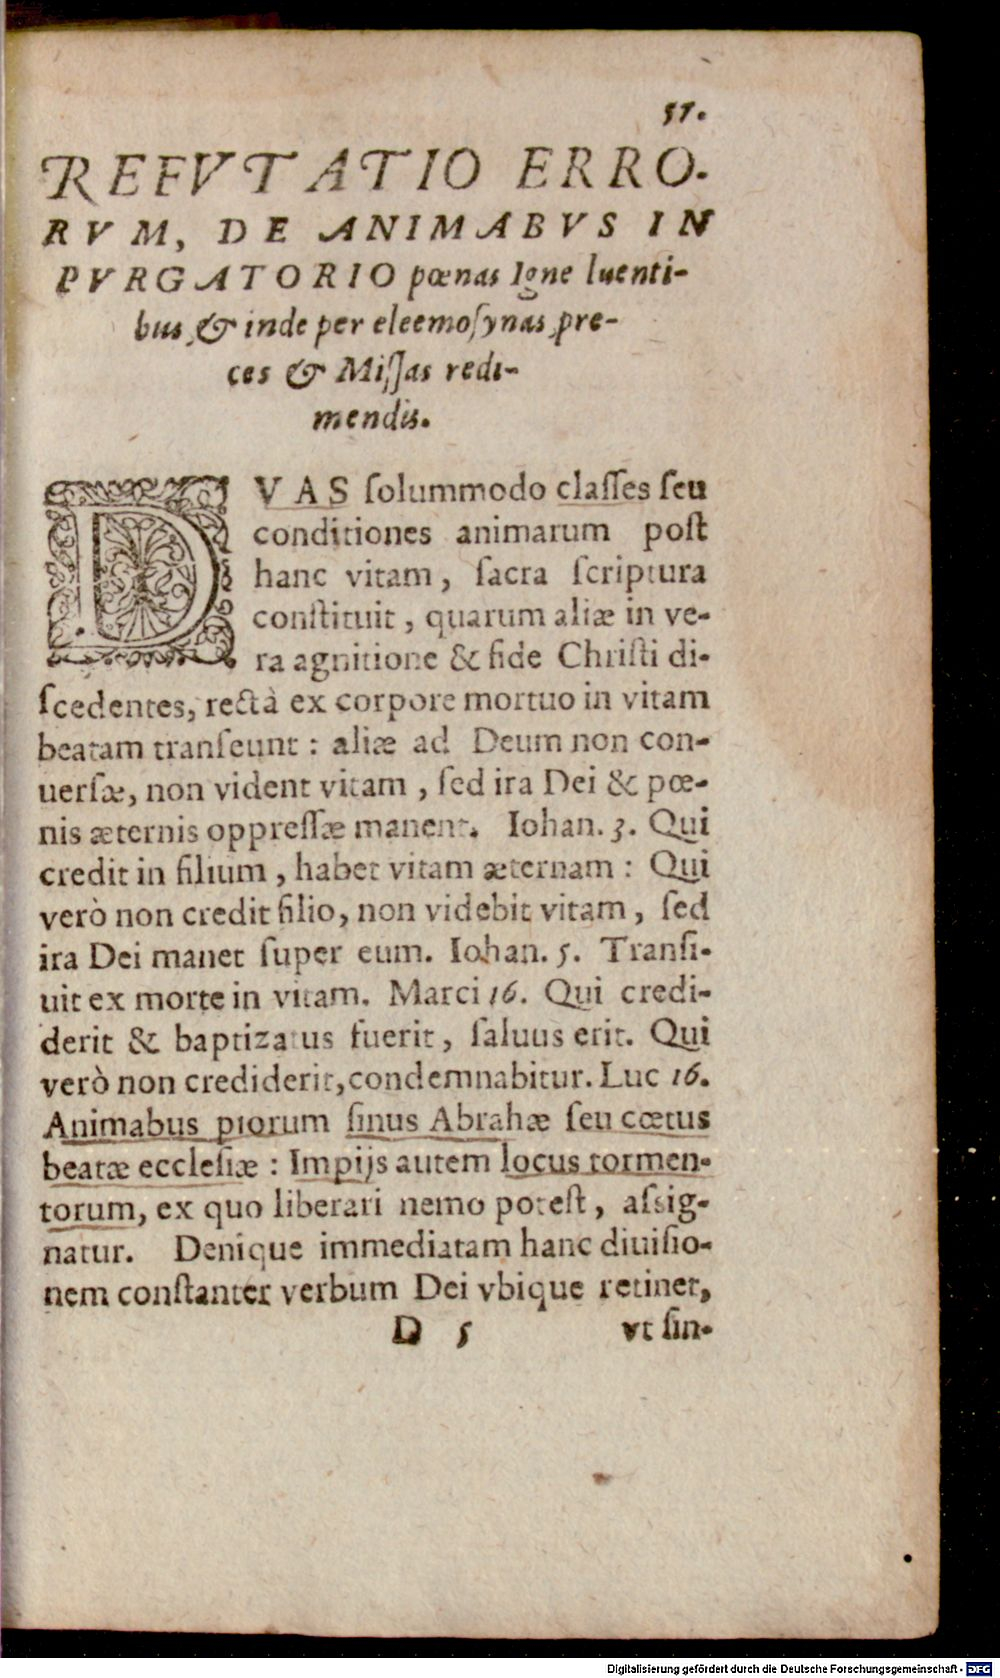 57.
REFVTATIO ERRO-
RVM, DE ANIMABVS IN
PVRGATORIO pœnas Igne luenti-
bus, & inde per eleemoſynas, pre-
ces & Miſſas redi-
mendis.
DVAS ſolummodo claſſes ſeu
conditiones animarum poſt
hanc vitam, ſacra ſcriptura
conſtituit, quarum aliæ in ve-
ra agnitione & fide Chriſti di-
ſcedentes, rectà ex corpore mortuo in vitam
beatam tranſeunt: aliæ ad Deum non con-
uerſæ, non vident vitam, ſed ira Dei & pœ-
nis æternis oppreſſæ manent. Iohan. 3. Qui
credit in filium, habet vitam æternam: Qui
verò non credit filio, non videbit vitam, ſed
ira Dei manet ſuper eum. Iohan. 5. Tranſi-
uit ex morte in vitam. Marci 16. Qui credi-
derit & baptizatus fuerit, ſaluus erit. Qui
verò non crediderit, condemnabitur. Luc 16.
Animabus piorum ſinus Abrahæ ſeu cœtus
beatæ eccleſiæ: Impijs autem locus tormen-
torum, ex quo liberari nemo poteſt, aſsig-
natur. Denique immediatam hanc diuiſio-
nem conſtanter verbum Dei vbique retinet,
D 5 vt ſin-
Digitalisierung gefördert durch die Deutsche Forschungsgemeinschaft - DFG